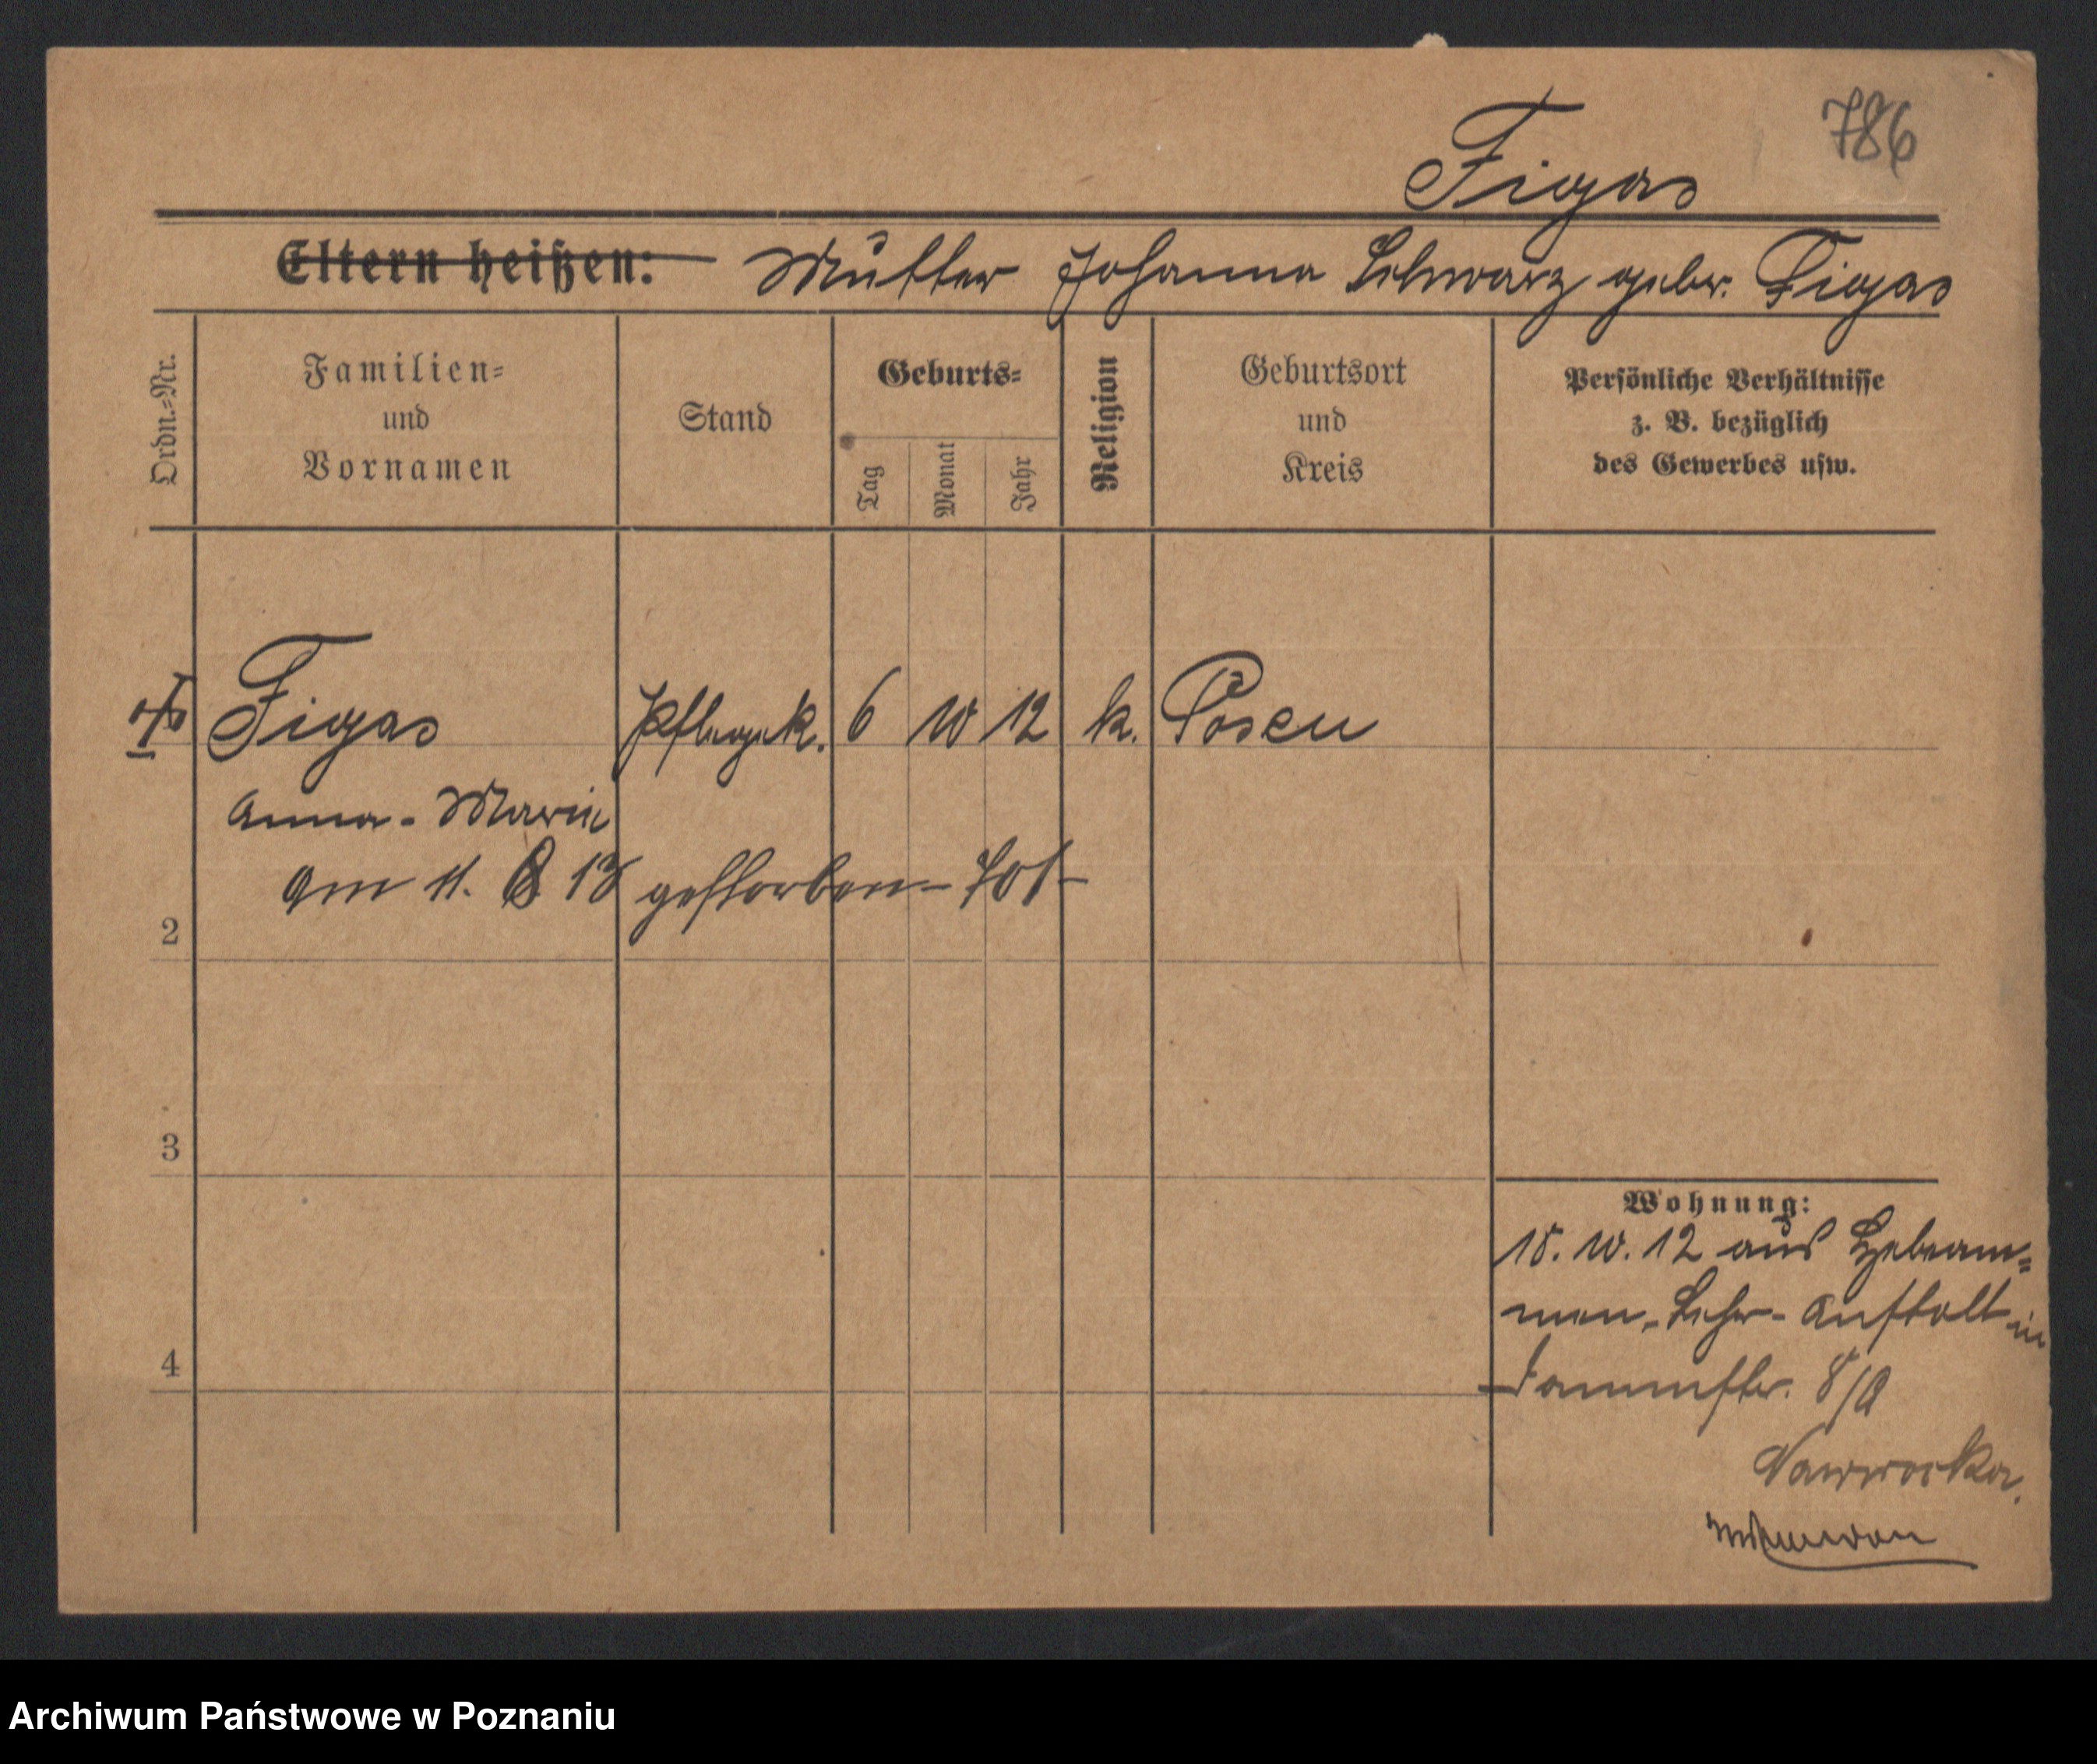 786
Figas
Eltern heißen: Mutter Johanna Schwarz gebr. Figas
Ordn.-Nr.
Familien-
und
Vornamen
Stand
Geburts-
Tag
Monat
Jahr
Religion
Geburtsort
und
Kreis
Persönliche Verhältnisse
z. B. bezüglich
des Gewerbes usw.
Figas Pflegek. 6 10 12 k. Posen
Anna-Marie
am 11. 8 13 gestorben - Tot -
2
3
4
Wohnung:
18. 10. 12 aus Hebam-
men-Lehr-Anstalt in
Dammstr. 8/9
Nawrocka.
Archiwum Państwowe w Poznaniu